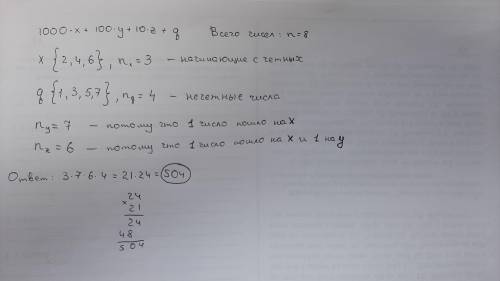 1000·x + 100·y + 10·z + q Всего чисел: n=8
x {2,4,6}, nₓ = 3 – начинающие с четных
q {1,3,5,7}, n_q = 4 – нечетные числа
n_y = 7 – потому что 1 число пошло на x
n_z = 6 – потому что 1 число пошло на x и 1 на y
Ответ: 3·7·6·4 = 21·24 = 504
24
× 21
24
48
504